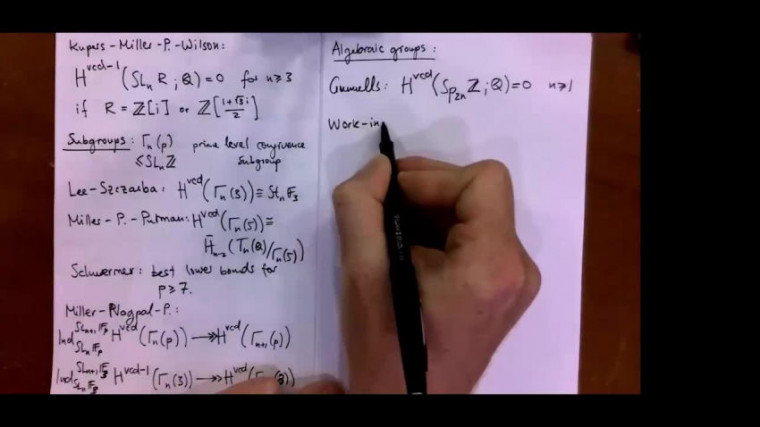 Kupers-Miller-P.-Wilson:
H^{vcd-1}(SL_n R; Q) = 0 for n≥3
if R = Z[i] or Z[(1+√3 i)/2]
Subgroups: Γ_n(p) prime level congruence
≤ SL_n Z subgroup
Lee-Szczarba: H^{vcd}(Γ_n(3)) ≅ St_n F_3
Miller-P.-Putman: H^{vcd}(Γ_n(5)) ≅
H̃_{n-2}(T_n(Q)/Γ_n(5))
Schwermer: best lower bounds for
p≥7.
Miller-Nagpal-P.:
Ind_{SL_n F_p}^{SL_{n+1} F_p} H^{vcd}(Γ_n(p)) ↠ H^{vcd}(Γ_{n+1}(p))
Ind_{SL_n F_3}^{SL_{n+1} F_3} H^{vcd-1}(Γ_n(3)) ↠ H^{vcd}(Γ_n(3))
Algebraic groups:
Gunnells: H^{vcd}(Sp_{2n} Z; Q) = 0 n≥1
Work-in